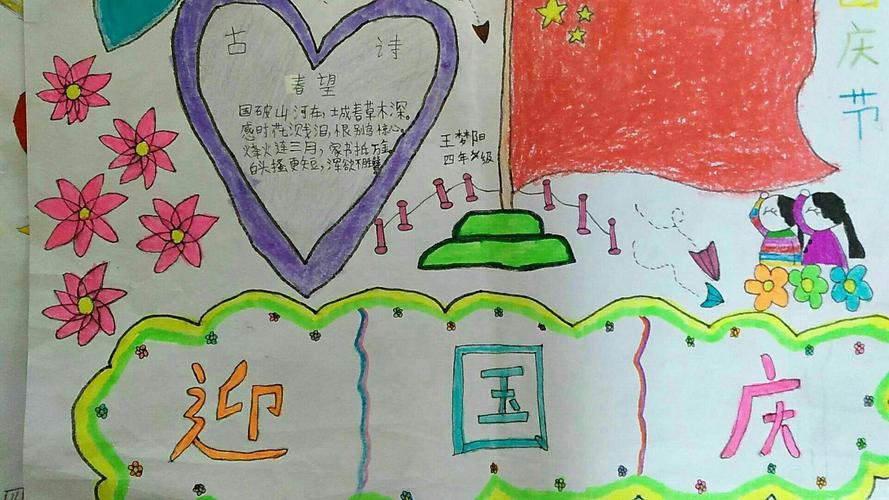 古诗
春望
国破山河在，城春草木深。
感时花溅泪，恨别鸟惊心。
烽火连三月，家书抵万金。
白头搔更短，浑欲不胜簪
王梦阳
四年级
国庆节
迎国庆